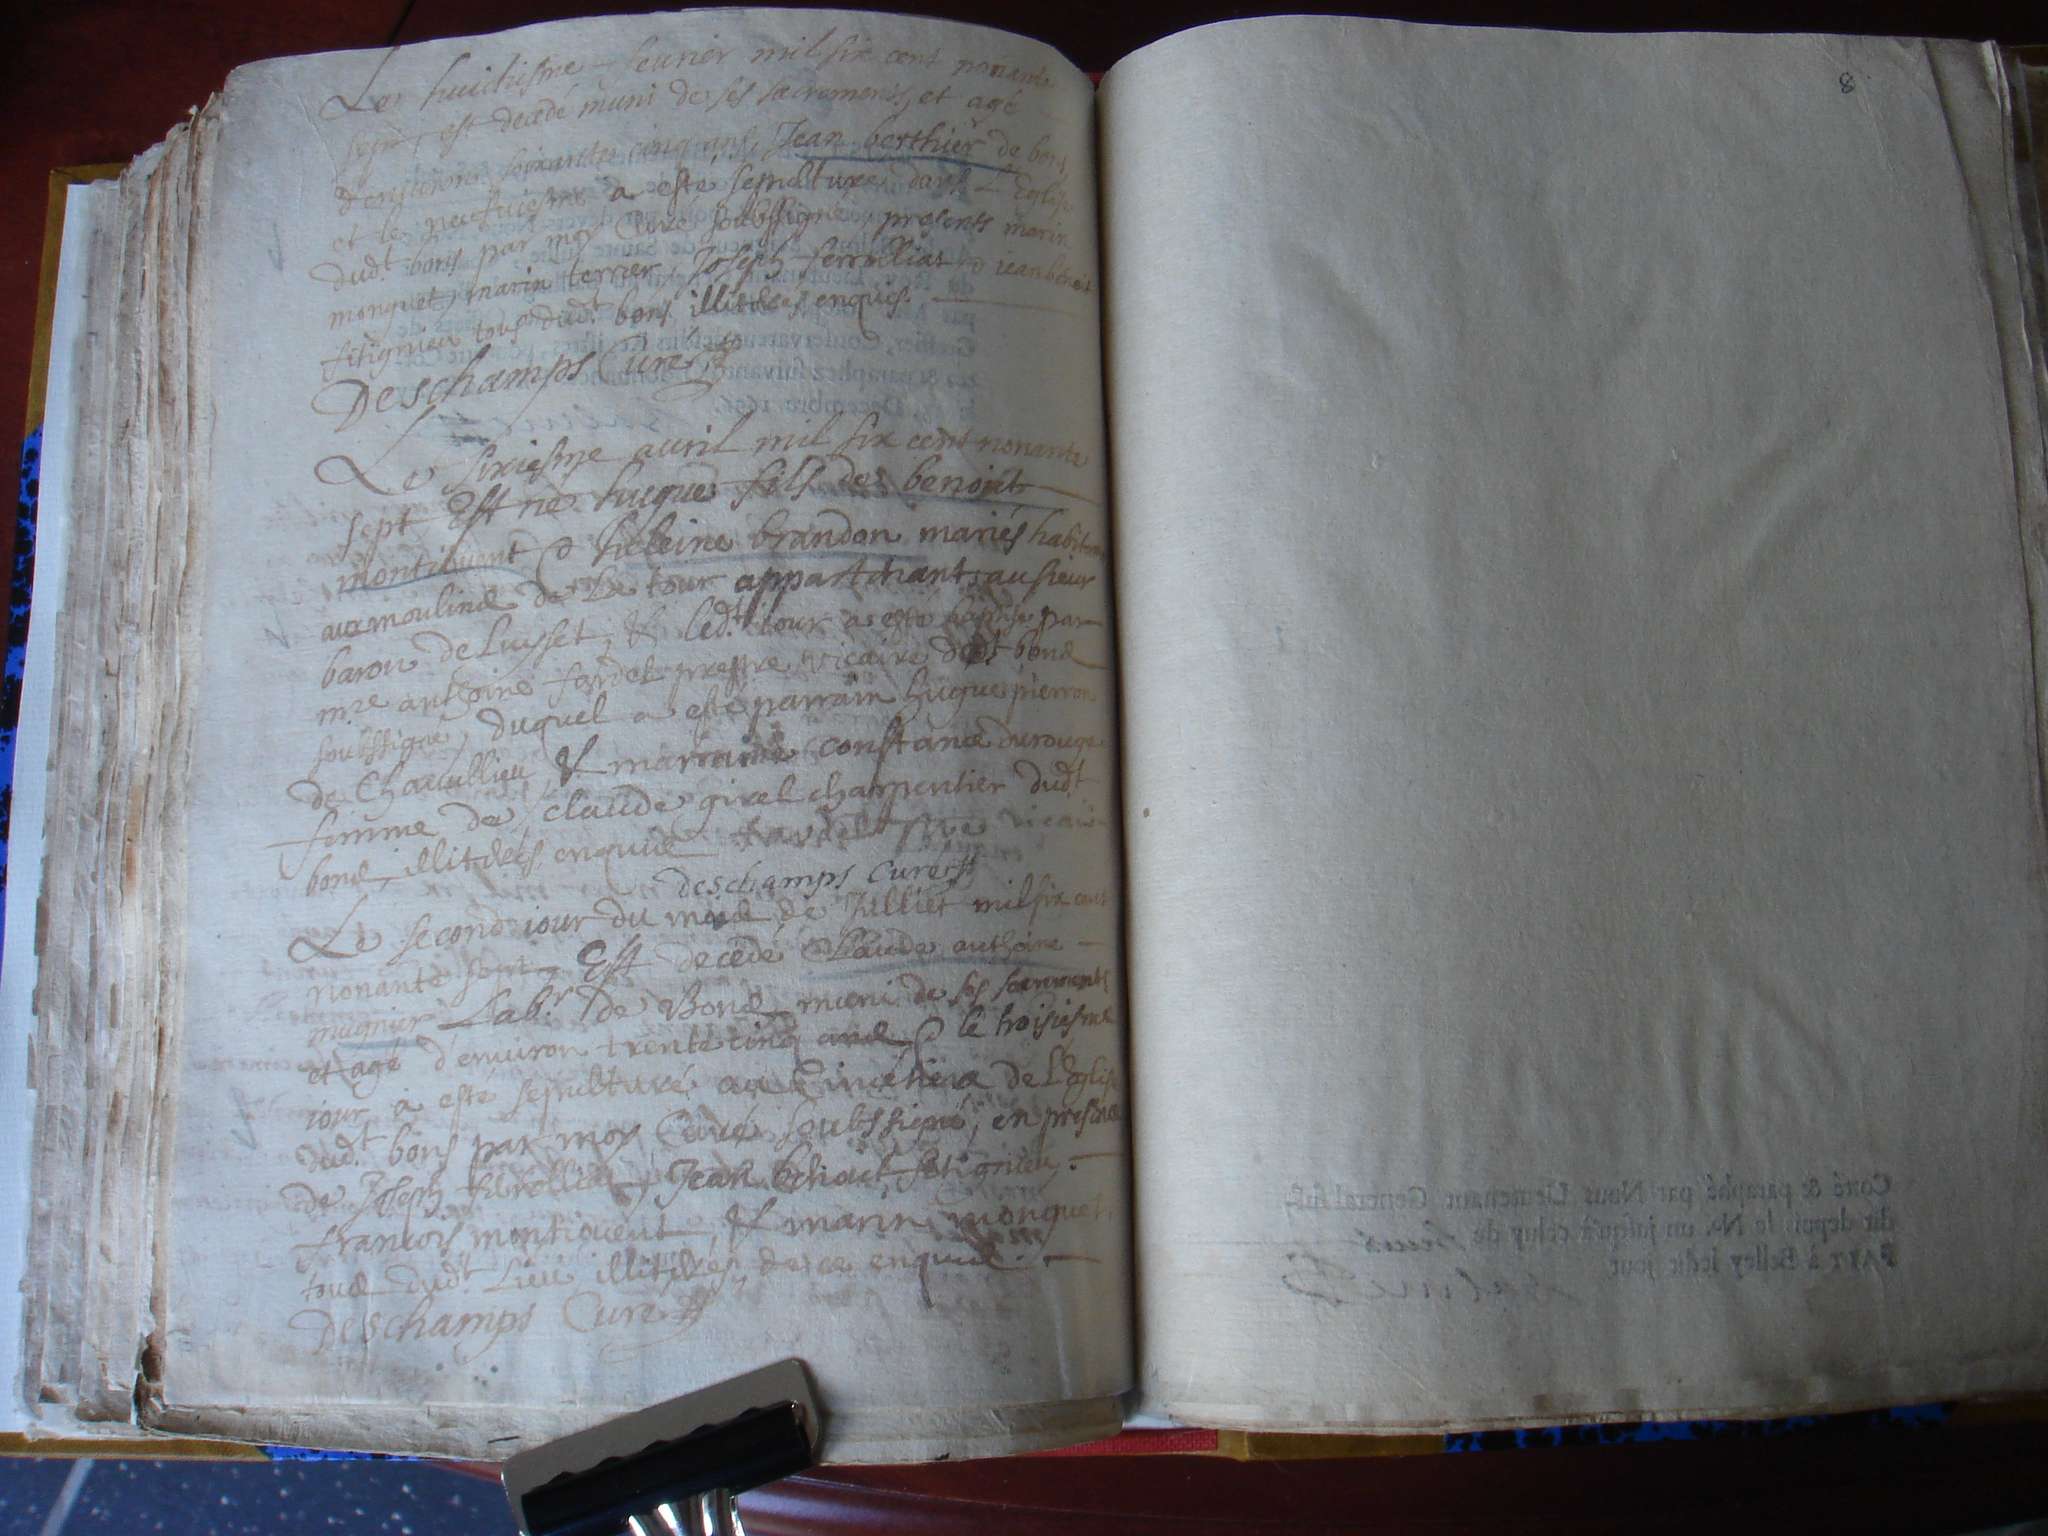 Le huictiesme feurier mil six cent nonante
sept, est decedé muni de ses sacrements, et agé
d'enuiron soixante cinq ans Jean berthier de bons,
et le neufuiesme a esté sepulturé dans L'Eglise
dud.t bons par moy Curé soubssigné, presents marin
monquet, marin terrier, Joseph ferrollliat & jean benoit
fitignieu tous dud.t bons illiteres enquis.
Deschamps Curé
Le sixiesme auril mil six cent nonante
sept Est né hugue fils de benoict
montiouent & heleine brandon mariés habitans
aux mouline de La tour appartenant, au sieur
baron de Luysset, & led.t iour a esté baptisé par
m.re anthoine fardel prestre vicaire dud.t bons
soubssigné, duquel a esté parrain hugue pierron
de Chauillieu, & marraine Constance durouge
femme de claude girel charpentier dud.t
bons, illiteres enquis fardel pre vicaire
deschamps Curé
Le second iour du mois de Juilliet mil six cent
nonante sept, Est decedé Claude anthoine
mugnier Lab.r de Bons, muni de ses sacrements
et agé d'enuiron trente cinq ans, & le troisiesme
iour a esté sepulturé au Cimetiere de L'Eglise
dud.t bons par moy Curé soubssigné, en presence
de Joseph ferrolliat, Jean benoict fitignieu,
francois montiouent, & marin monquet
tous dud.t Lieu illiteres, de ce enquis.
Deschamps Curé
8
Cotté & paraphé par Nous Lieutenant General sus-
dit depuis le No. un jusqu'à celuy de
FAIT à Belley ledit jour